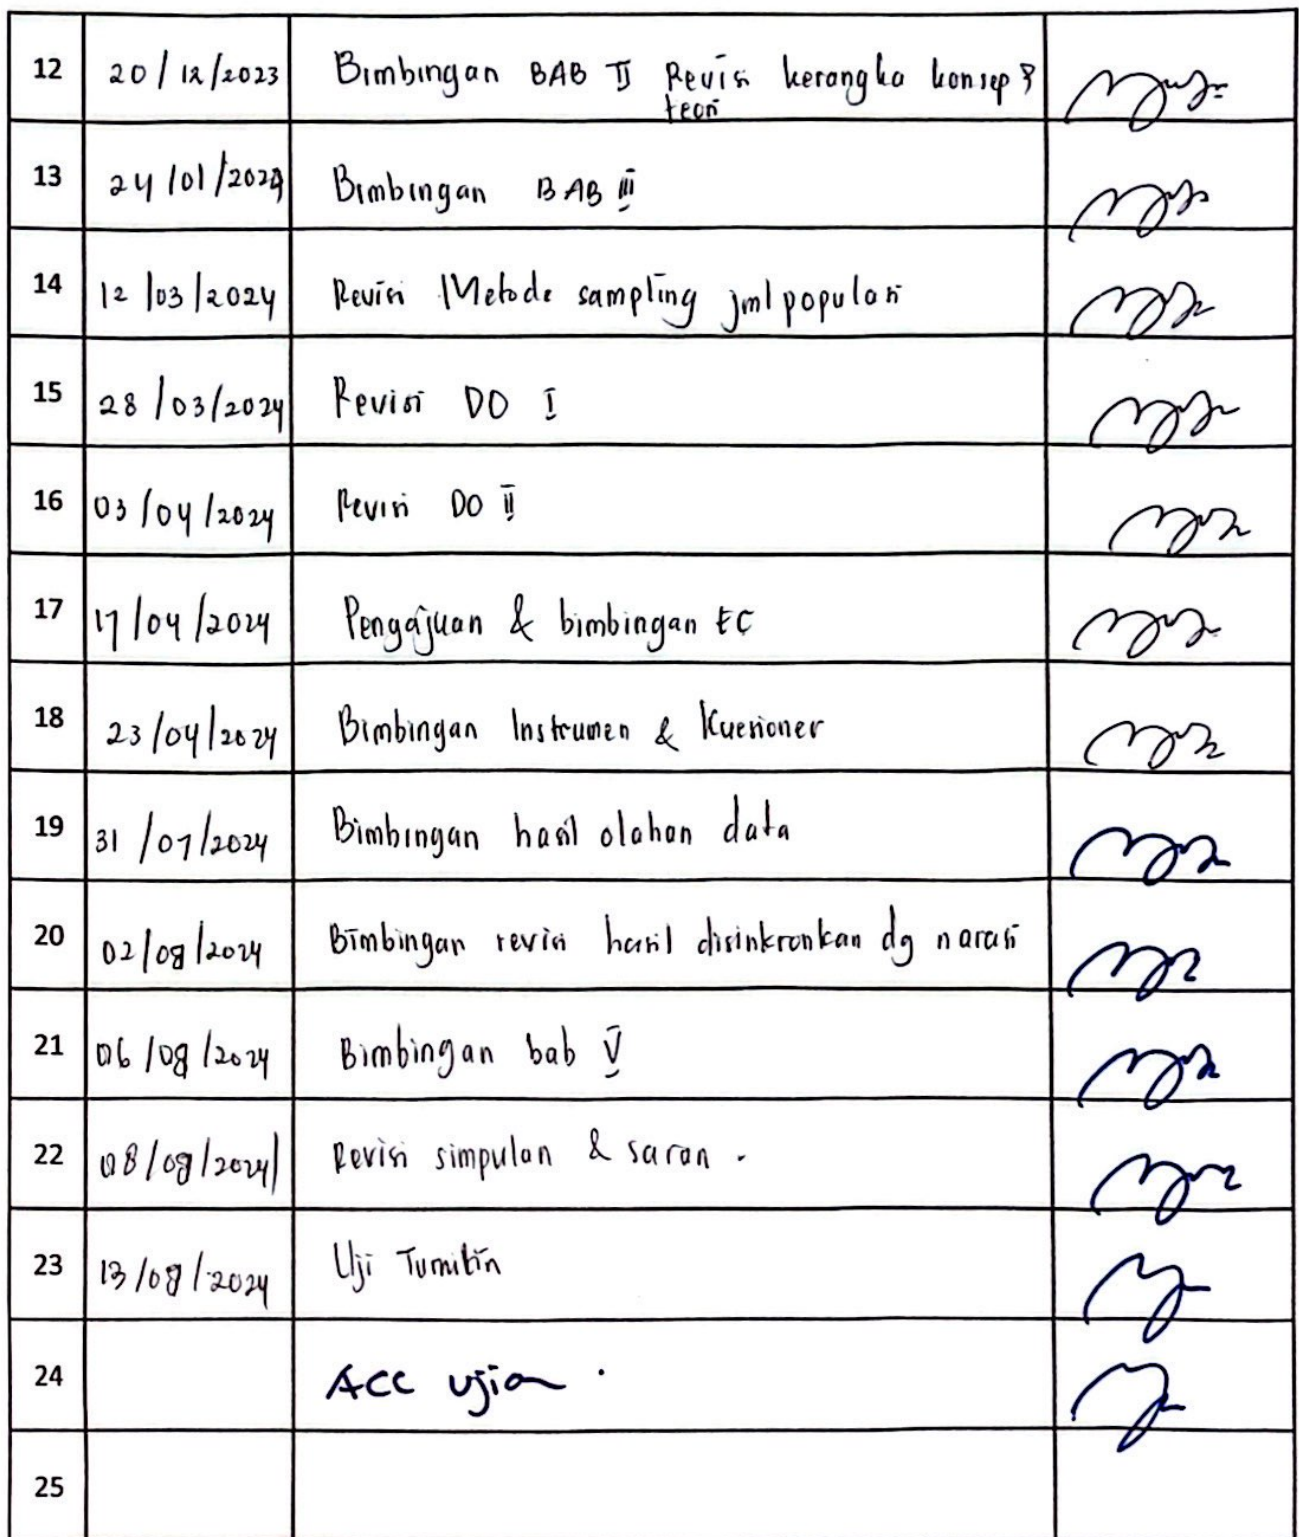 12 20/12/2023 Bimbingan BAB II Revisi kerangka konsep &
teori
13 24/01/2024 Bimbingan BAB III
14 12/03/2024 Revisi Metode sampling jml populasi
15 28/03/2024 Revisi DO I
16 03/04/2024 Revisi DO II
17 17/04/2024 Pengajuan & bimbingan EC
18 23/04/2024 Bimbingan Instrumen & Kuesioner
19 31/07/2024 Bimbingan hasil olahan data
20 02/08/2024 Bimbingan revisi hasil disinkronkan dg narasi
21 06/08/2024 Bimbingan bab V
22 08/08/2024 Revisi simpulan & saran .
23 13/08/2024 Uji Turnitin
24 ACC Ujian .
25